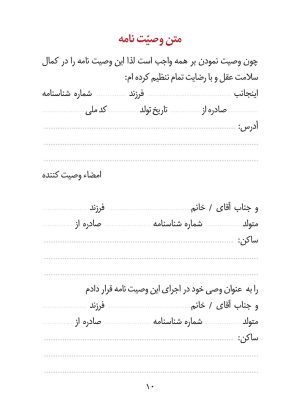 متن وصیّت نامه
چون وصیت نمودن بر همه واجب است لذا این وصیت نامه را در کمال
سلامت عقل و با رضایت تمام تنظیم کرده ام:
اینجانب ........................ فرزند ........................ شماره شناسنامه
........................ صادره از ............ تاریخ تولد ............ کد ملی ............
آدرس: ........................
امضاء وصیت کننده
و جناب آقای / خانم ........................ فرزند ............
متولد ............ شماره شناسنامه ............ صادره از ............
ساکن: ........................
را به عنوان وصی خود در اجرای این وصیت نامه قرار دادم
و جناب آقای / خانم ........................ فرزند ............
متولد ............ شماره شناسنامه ............ صادره از ............
ساکن: ........................
۱۰